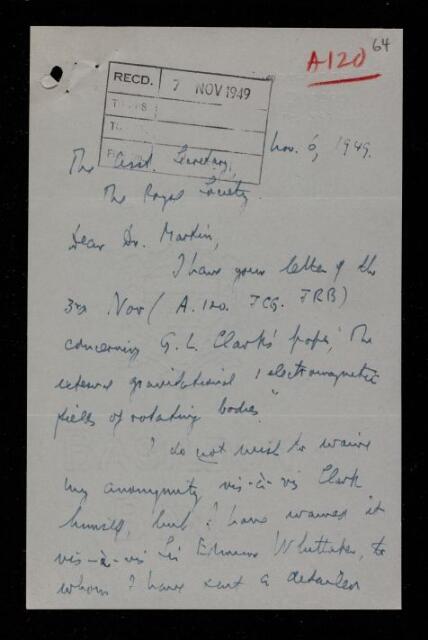 64
A120
RECD. 7 NOV 1949
Nov. 6, 1949.
The Asst. Secretary,
The Royal Society.
Dear Dr. Martin,
I have your letter of the
3rd Nov (A.120. FCG. FRB)
concerning G. L. Clark's paper, "The
external gravitational & electromagnetic
fields of rotating bodies"
I do not wish to waive
my anonymity vis-à-vis Clark
himself, but I have waived it
vis-à-vis Sir Edmund Whittaker, to
whom I have sent a detailed